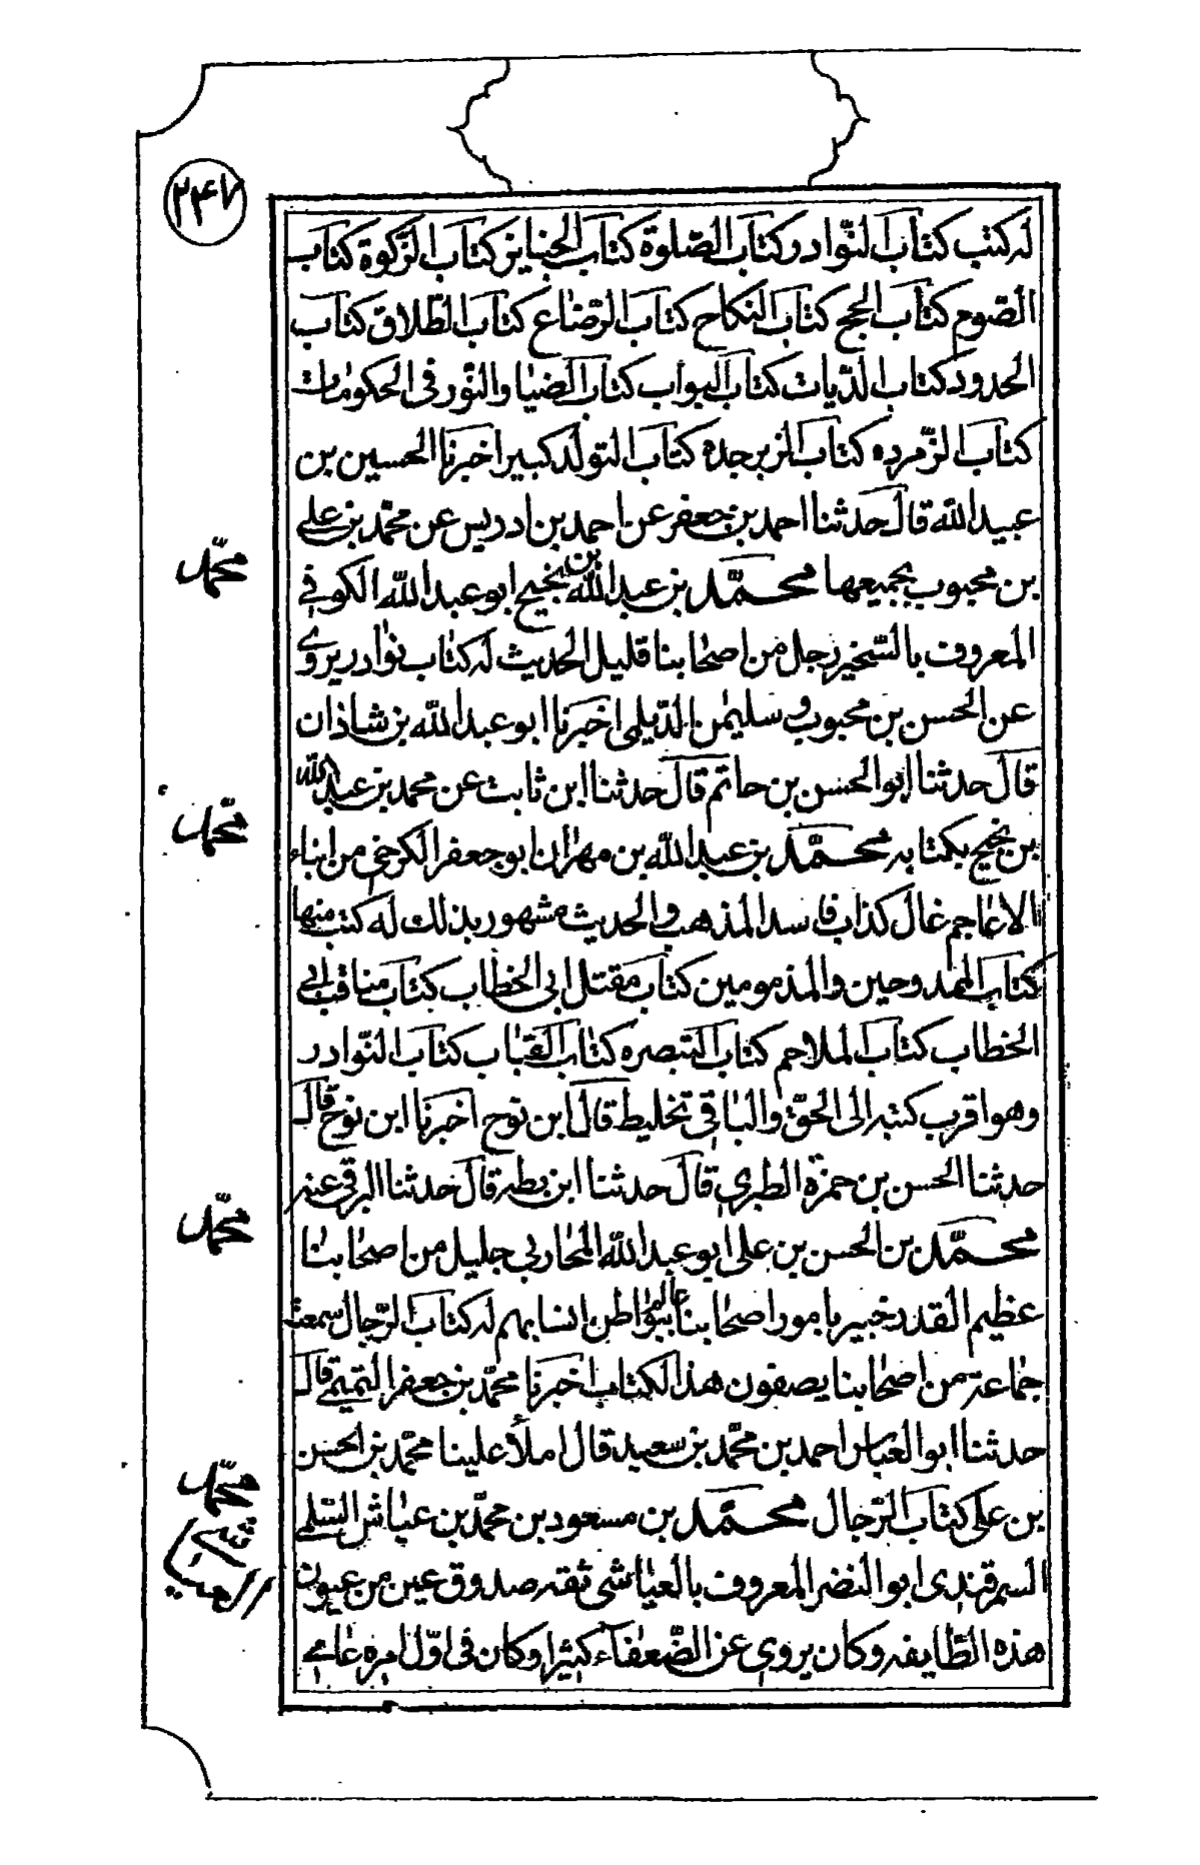 ۲۴۷
له كتب كتاب النّوادر كتاب الصّلوة كتاب الجنايز كتاب الزّكوة كتاب
الصّوم كتاب الحج كتاب النكاح كتاب الرّضاع كتاب الطّلاق كتاب
الحدود كتاب الدّيات كتاب البواب كتاب الضيا والنّور فى الحكومات
كتاب الزّمرده كتاب الزبرجده كتاب التولّد كبير اخبرنا الحسين بن
عبيد الله قال حدثنا احمد بن جعفر عن احمد بن ادريس عن محمّد بن على
بن محبوب بجميعها محمّد بن عبد الله بن نجيح ابو عبد الله الكوفى
المعروف بالسّخير رجل من اصحابنا قليل الحديث له كتاب نوادر يروى
عن الحسن بن محبوب و سليمن الدّيلمى اخبرنا ابو عبد الله بن شاذان
قال حدثنا ابو الحسن بن حاتم قال حدثنا ابن ثابت عن محمد بن عبد الله
بن نجيح بكتابه محمّد بن عبد الله بن مهران ابو جعفر الكرخى من ابناء
الاعاجم غال كذاب فاسد المذهب و الحديث مشهور بذلك له كتب منها
كتاب الممدوحين والمذمومين كتاب مقتل ابى الخطاب كتاب مناقب ابى
الخطاب كتاب الملاحم كتاب التبصره كتاب القباب كتاب النّوادر
وهو اقرب كتبه الى الحقّ والباقى تخليط قال ابن نوح اخبرنا ابن نوح قال
حدثنا الحسن بن حمزة الطبرى قال حدثنا ابن بطه قال حدثنا البرقى عنه
محمّد بن الحسن بن على ابو عبد الله المحاربى جليل من اصحابنا
عظيم القدر خبير بامور اصحابنا عالم ببواطن انسابهم له كتاب الرّجال سمعت
جماعة من اصحابنا يصفون هذا الكتاب اخبرنا محمّد بن جعفر التميمى قال
حدثنا ابو العباس احمد بن محمّد بن سعيد قال املأ علينا محمّد بن الحسن
بن على كتاب الرّجال محمّد بن مسعود بن محمّد بن عيّاش السّلمى
السمرقندى ابو النضر المعروف بالعياشى ثقه صدوق عين من عيون
هذه الطّايفه وكان يروى عن الضّعفاء كثيرا وكان فى اوّل امره عامى
محمّد
محمّد
محمّد
محمّد